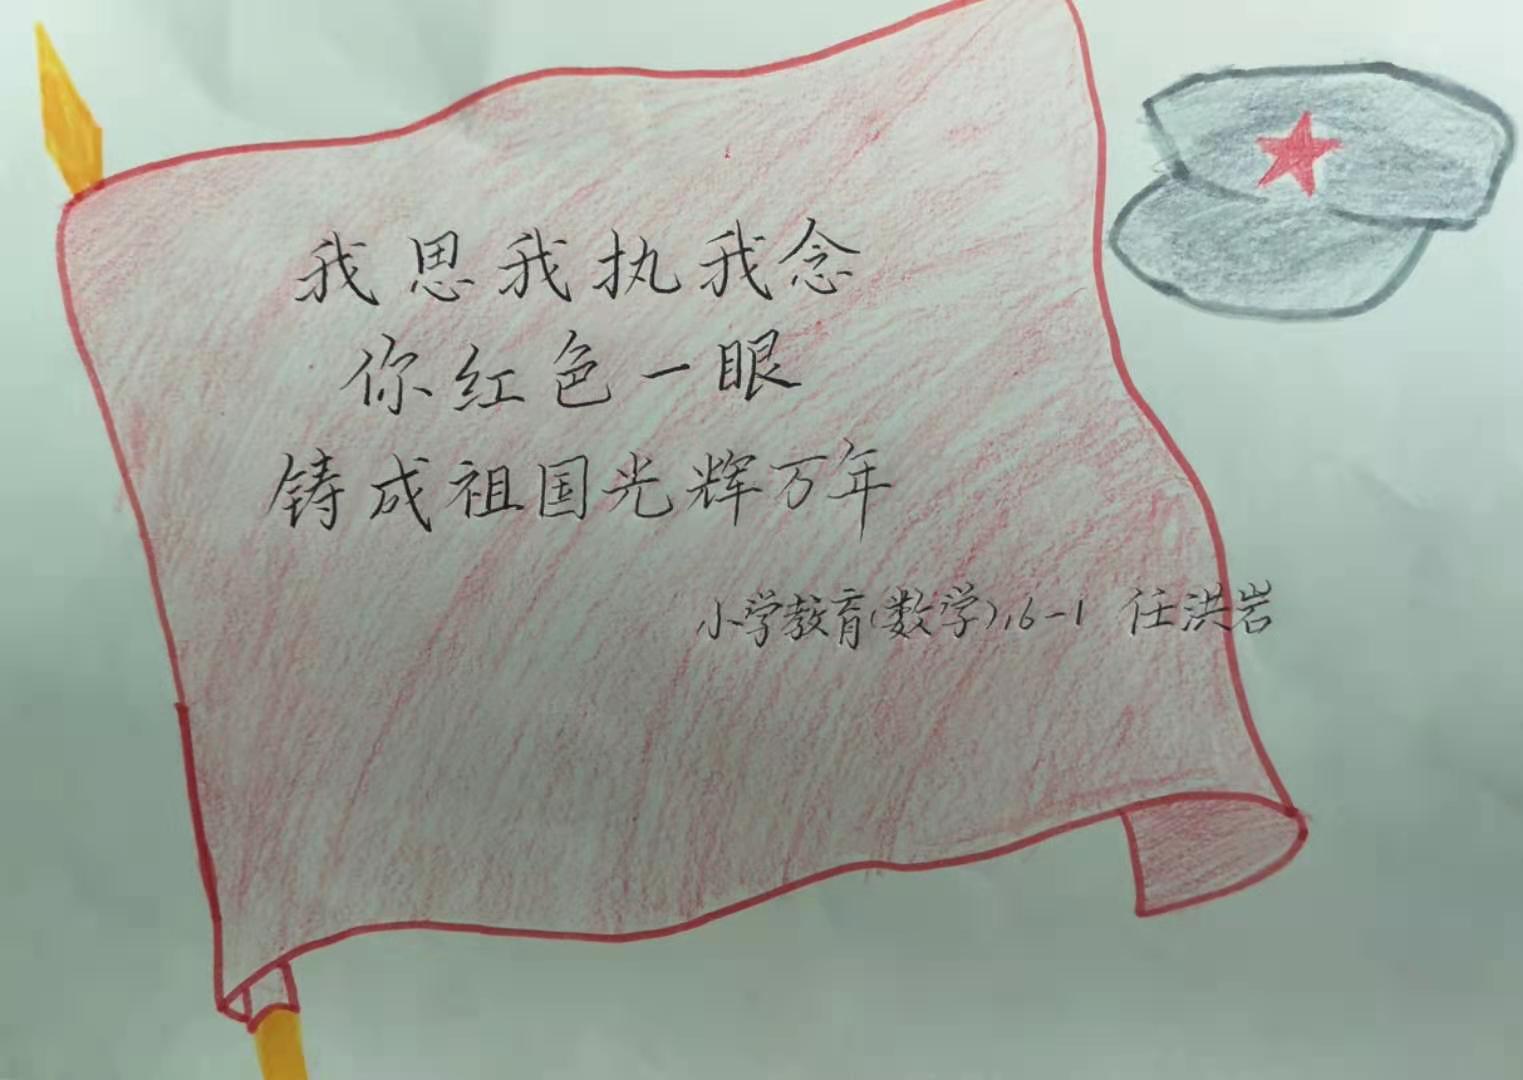 我思我执我念
你红色一眼
铸成祖国光辉万年
小学教育(数学)16-1 任洪岩